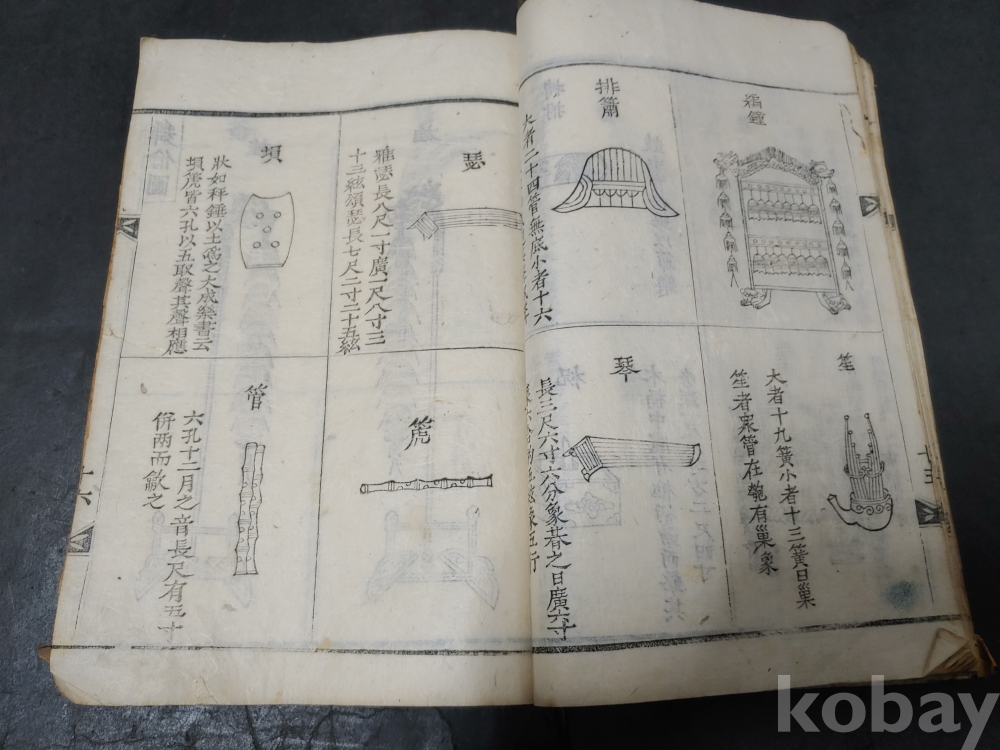 編鐘
笙
大者十九簧小者十三簧曰巢
笙者衆管在匏有巢象
排簫
大者二十四管無底小者十六
琴
長三尺六寸六分象朞之日廣六寸
瑟
雅瑟長八尺一寸廣一尺八寸三
十三絃頌瑟長七尺二寸二十五絃
箎
塤
狀如秤錘以土爲之大成樂書云
塤箎皆六孔以五取聲其聲相應
管
六孔十二月之音長尺有五寸
併两而歙之
十六
kobay